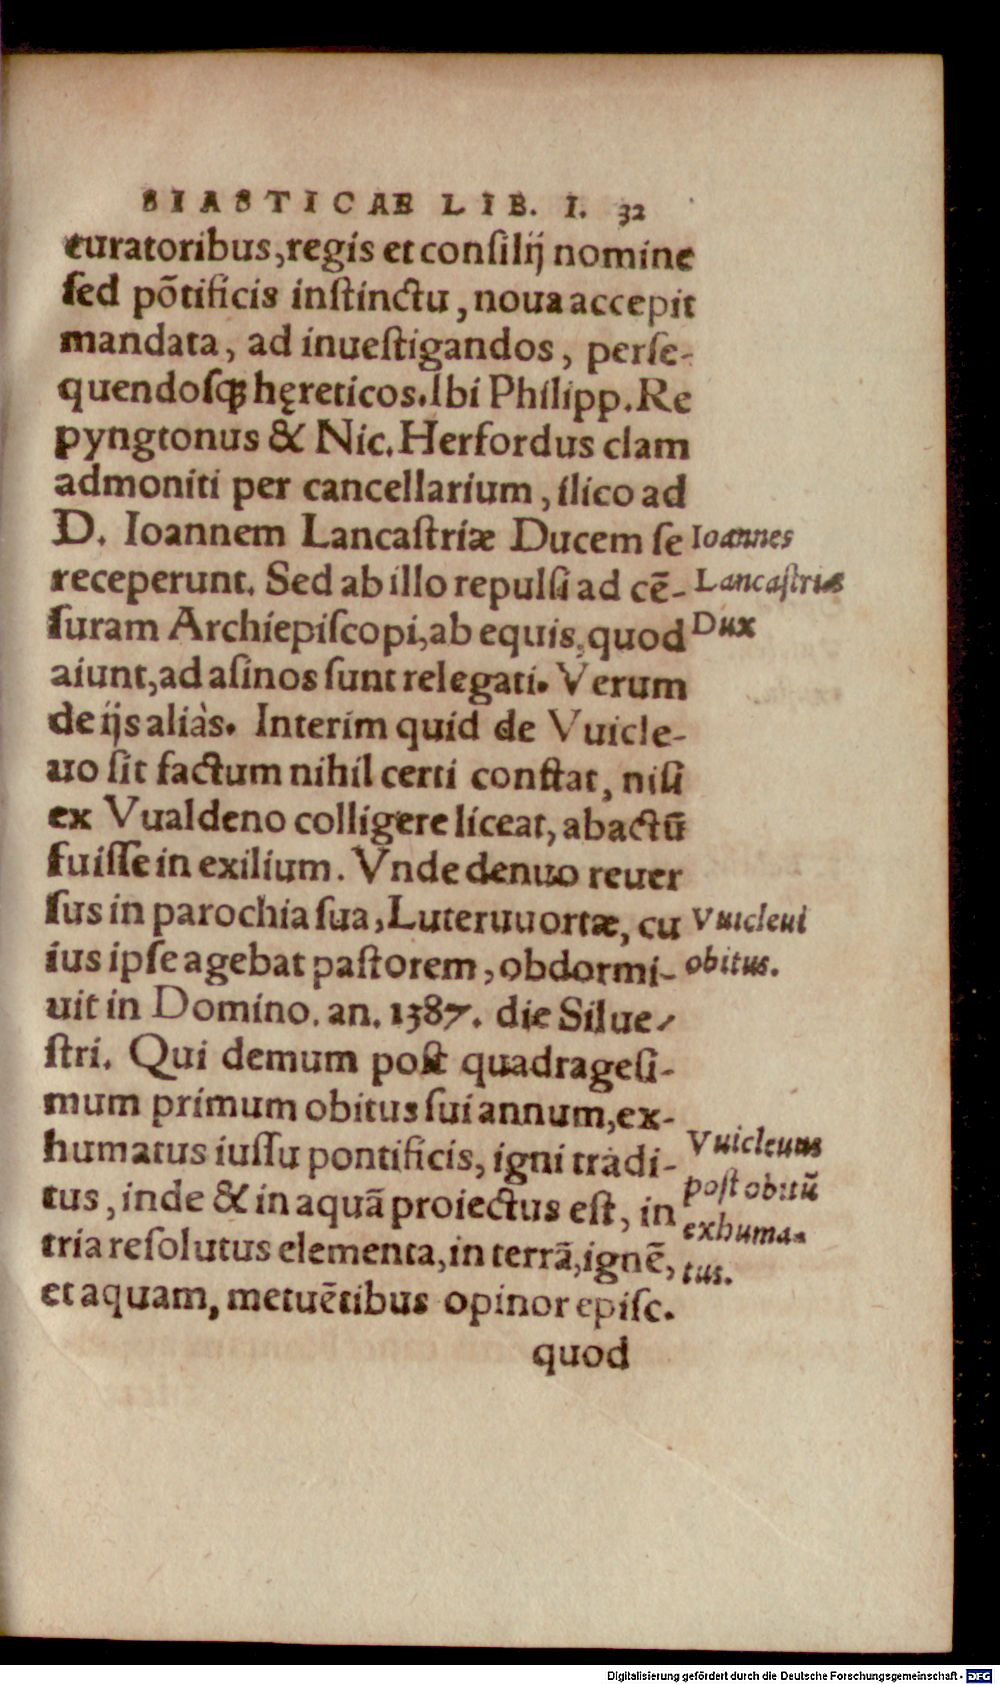 SIASTICAE LIB. I. 32
curatoribus, regis et consilij nomine
sed põtificis instinctu, noua accepit
mandata, ad inuestigandos, perse-
quendosq́; hęreticos. Ibi Philipp. Re
pyngtonus & Nic. Herfordus clam
admoniti per cancellarium, ilico ad
D. Ioannem Lancastriæ Ducem se
Ioannes
receperunt. Sed ab illo repulsi ad cẽ-
Lancastriæ
suram Archiepiscopi, ab equis, quod
Dux
aiunt, ad asinos sunt relegati. Verum
de ijs aliàs. Interim quid de Vuicle-
uo sit factum nihil certi constat, nisi
ex Vualdeno colligere liceat, abactũ
fuisse in exilium. Vnde denuo reuer
sus in parochia sua, Luteruuortæ, cu
Vuicleui
ius ipse agebat pastorem, obdormi-
obitus.
uit in Domino. an. 1387. die Silue-
stri. Qui demum post quadragesi-
mum primum obitus sui annum, ex-
humatus iussu pontificis, igni tradi-
Vuicleuus
tus, inde & in aquã proiectus est, in
post obitũ
tria resolutus elementa, in terrã, ignẽ,
exhuma-
et aquam, metuẽtibus opinor episc.
tus.
quod
Digitalisierung gefördert durch die Deutsche Forschungsgemeinschaft - DFG